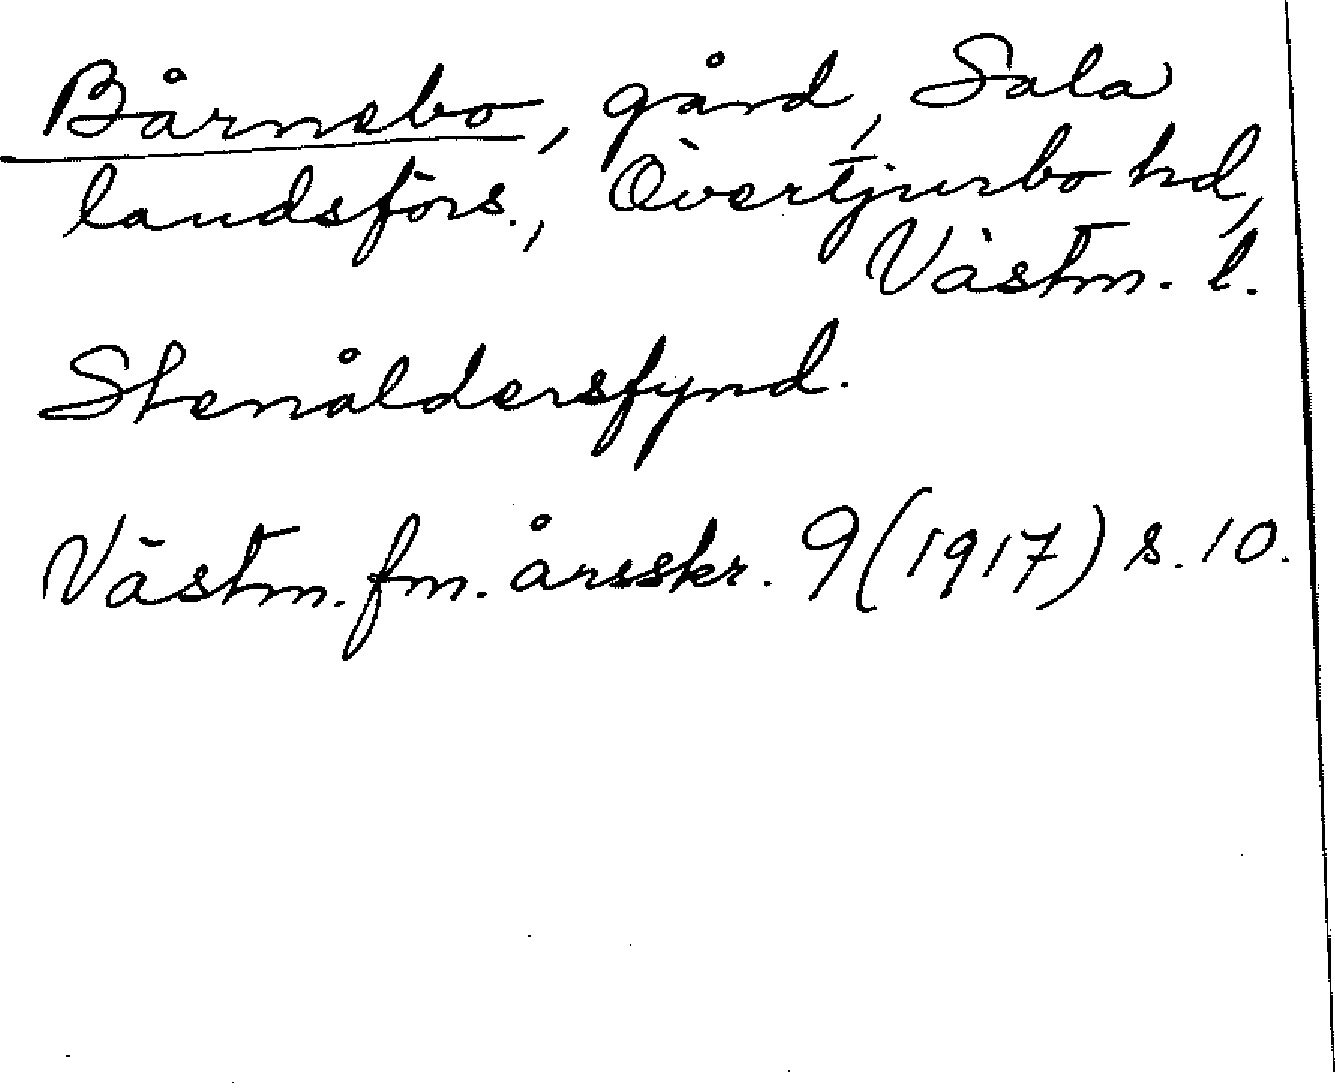 Bårnebo, gård, Sala
landsförs., Övertjurbo hd,
Västm. l.
Stenåldersfynd.
Västm. fm. årsskr. 9 (1917) s. 10.